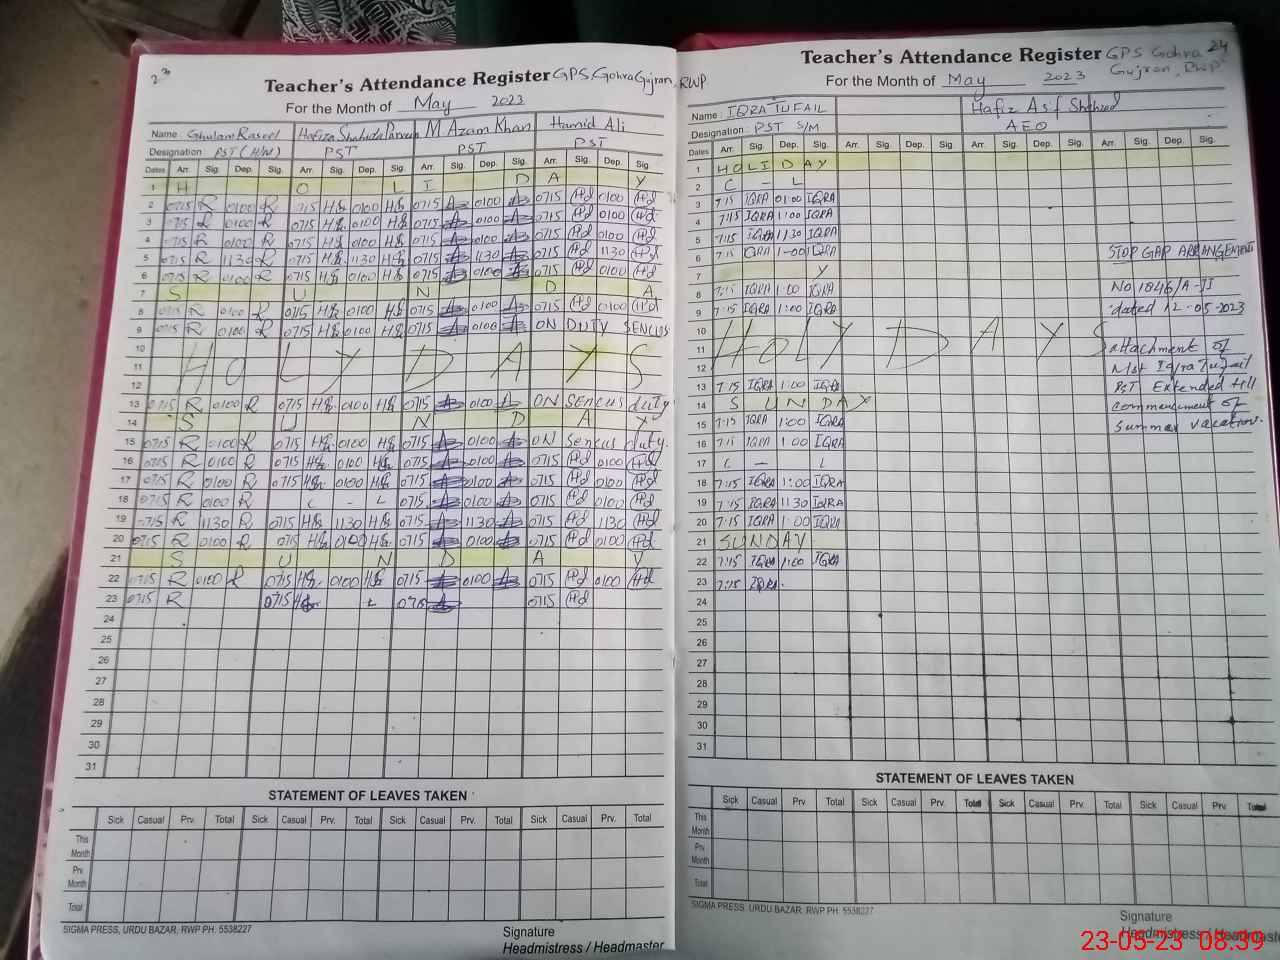 23
Teacher's Attendance Register GPS Gohra Gujran, RWP
For the Month of May 2023
Name : Ghulam Rasool Hafiza Shahida Parveen M Azam Khan Hamid Ali
Designation : PST (H/M) PST PST PST
Dates Arr. Sig. Dep. Sig. Arr. Sig. Dep. Sig. Arr. Sig. Dep. Sig. Arr. Sig. Dep. Sig.
1 H O L I D A Y
2 0715 R 0100 R 0715 0100 0715 0100 0715 Hd 0100 Hd
3 0715 R 0100 R 0715 0100 0715 0100 0715 Hd 0100 Hd
4 0715 R 0100 R 0715 0100 0715 0100 0715 Hd 0100 Hd
5 0715 R 1130 R 0715 1130 0715 1130 0715 Hd 1130 Hd
6 0715 R 0100 R 0715 0100 0715 0100 0715 Hd 0100 Hd
7 S U N D A
8 0715 R 0100 R 0715 0100 0715 0100 0715 Hd 0100 Hd
9 0715 R 0100 R 0715 0100 0715 0100 ON DUTY SENCUS
10
11 HOLYDAYS
12
13 0715 R 0100 R 0715 0100 0715 0100 ON SENCUS duty
14 S U N D A Y
15 0715 R 0100 R 0715 0100 0715 0100 ON Sencus duty.
16 0715 R 0100 R 0715 0100 0715 0100 0715 Hd 0100 Hd
17 0715 R 0100 R 0715 0100 0715 0100 0715 Hd 0100 Hd
18 0715 R 0100 R C - L 0715 0100 0715 Hd 0100 Hd
19 0715 R 1130 R 0715 1130 0715 1130 0715 Hd 1130 Hd
20 0715 R 0100 R 0715 0100 0715 0100 0715 Hd 0100 Hd
21 S U N D A Y
22 0715 R 0100 R 0715 0100 0715 0100 0715 Hd 0100 Hd
23 0715 R 0715 L 0715 0715 Hd
24
25
26
27
28
29
30
31
STATEMENT OF LEAVES TAKEN
Sick Casual Prv. Total Sick Casual Prv. Total Sick Casual Prv. Total Sick Casual Prv. Total
This Month
Prv Month
Total
SIGMA PRESS, URDU BAZAR, RWP PH: 5538227
Signature
Headmistress / Headmaster
24
Teacher's Attendance Register GPS Gohra Gujran, RWP
For the Month of May 2023
Name : IQRA TUFAIL Hafiz Asf Shahzad
Designation : PST S/M AEO
Dates Arr. Sig. Dep. Sig. Arr. Sig. Dep. Sig. Arr. Sig. Dep. Sig. Arr. Sig. Dep. Sig.
1 HOLIDAY
2 C - L
3 7:15 IQRA 01:00 IQRA
4 7:15 IQRA 1:00 IQRA
5 7:15 IQRA 1130 IQRA
6 7:15 IQRA 1:00 IQRA
7 Y
8 7:15 IQRA 1:00 IQRA
9 7:15 IQRA 1:00 IQRA
10
11 HOLYDAYS
12
13 7:15 IQRA 1:00 IQRA
14 S U N D A Y
15 7:15 IQRA 1:00 IQRA
16 7:15 IQRA 1:00 IQRA
17 C - L
18 7:15 IQRA 1:00 IQRA
19 7:15 IQRA 1130 IQRA
20 7:15 IQRA 1:00 IQRA
21 SUNDAY
22 7:15 IQRA 1:00 IQRA
23 7:15 IQRA.
24
25
26
27
28
29
30
31
STOP GAP ARRANGEMENT
No 1846/A-II
dated 12-05-2023
attachment of
Mst Iqra Tufail
PST Extended till
commencement of
Summer vacation.
STATEMENT OF LEAVES TAKEN
Sick Casual Prv Total Sick Casual Prv. Total Sick Casual Prv. Total Sick Casual Prv. Total
This Month
Prv Month
Total
SIGMA PRESS, URDU BAZAR, RWP PH: 5538227
Signature
Headmistress / Headmaster
23-05-23 08:39